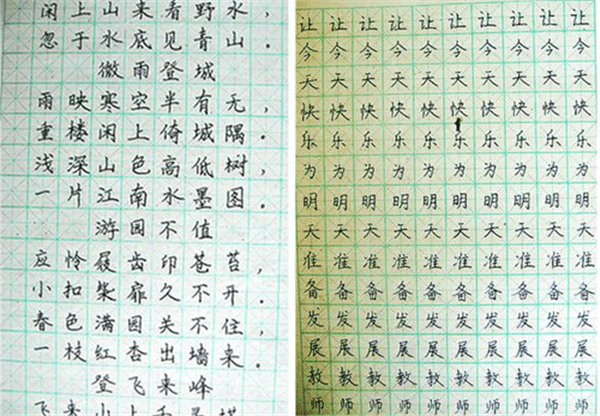 闲上山来看野水，
忽于水底见青山．
微雨登城
雨映寒空半有无，
重楼闲上倚城隅．
浅深山色高低树，
一片江南水墨图．
游园不值
应怜屐齿印苍苔，
小扣柴扉久不开．
春色满园关不住，
一枝红杏出墙．
登飞来峰
飞来山上千寻塔
让让让让让让让让让让
今今今今今今今今今今
天天天天天天天天天天
快快快快快快快快快快
乐乐乐乐乐乐乐乐乐乐
为为为为为为为为为为
明明明明明明明明明明
天天天天天天天天天天
准准准准准准准准准准
备备备备备备备备备备
发发发发发发发发发发
展展展展展展展展展展
教教教教教教教教教教
师师师师师师师师师师